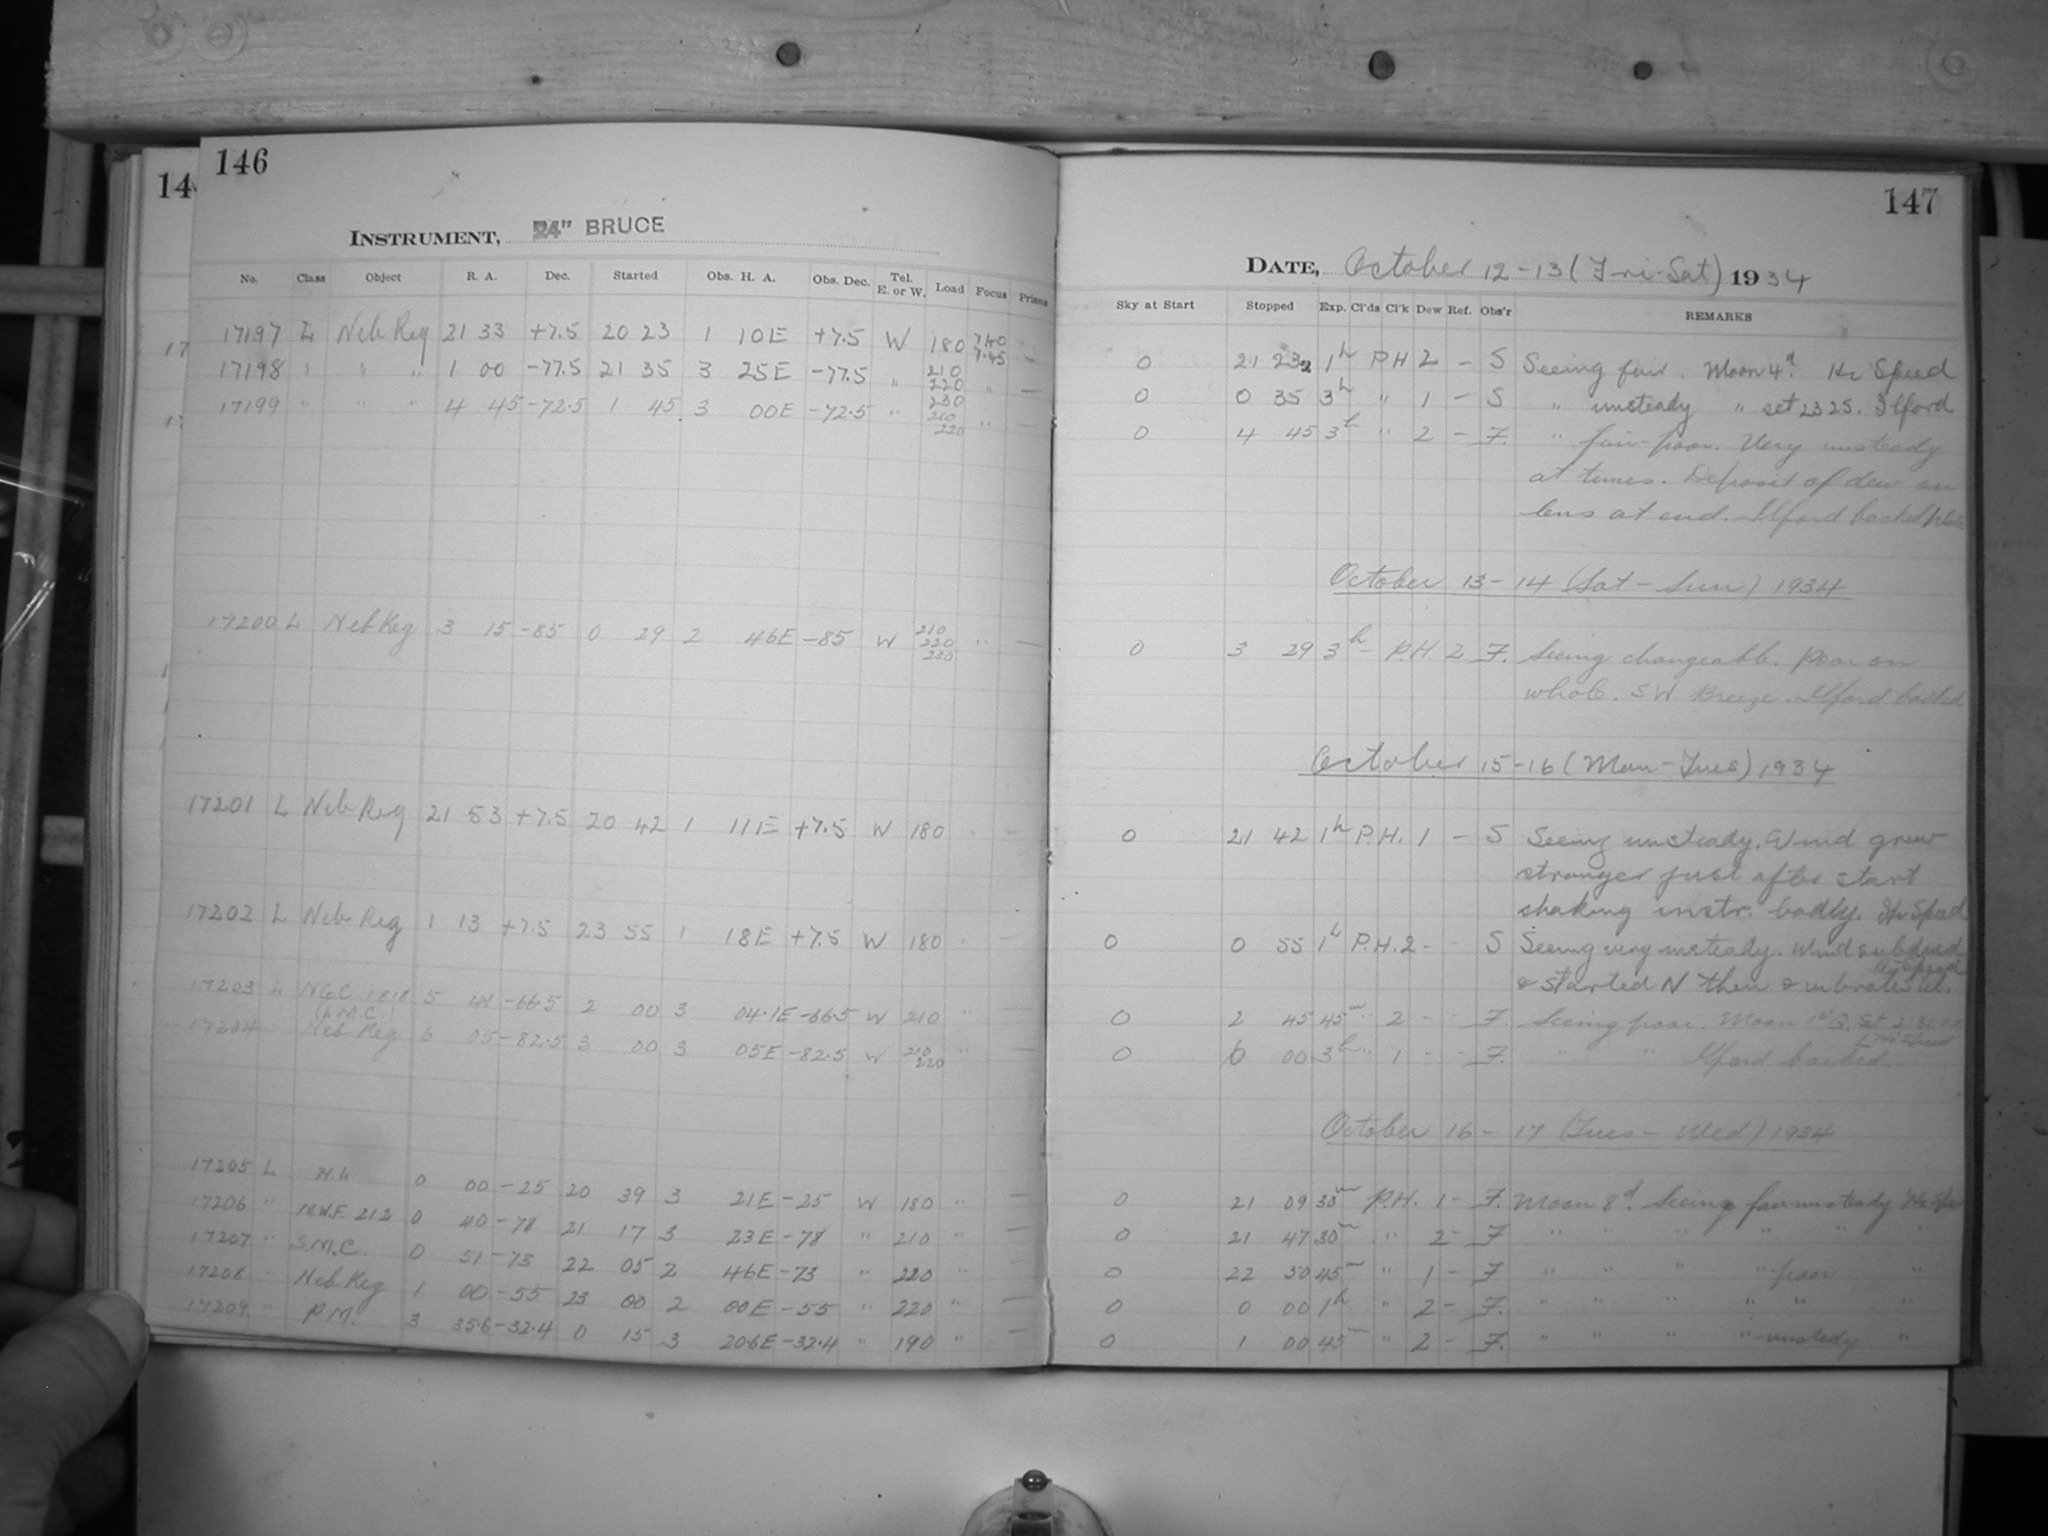 146
14
INSTRUMENT, 24" BRUCE
No. Class Object R. A. Dec. Started Obs. H. A. Obs. Dec. Tel. E. or W. Load Focus Prisms
17197 L Neb Reg 21 33 +7.5 20 23 1 10E +7.5 W 180 7.40 7.45 —
17198 " " " 1 00 -77.5 21 35 3 25E -77.5 " 210 220 230 " —
17199 " " " 4 45 -72.5 1 45 3 00E -72.5 " 210 220 " —
17200 L Neb Reg 3 15 -85 0 29 2 46E -85 W 210 220 230 " —
17201 L Neb Reg 21 53 +7.5 20 42 1 11E +7.5 W 180 " —
17202 L Neb Reg 1 13 +7.5 23 55 1 18E +7.5 W 180 " —
17203 L NGC 1818 (L.M.C.) 5 -66.5 2 00 3 04.1E -66.5 W 210 "
17204 Neb Reg 6 05 -82.5 3 00 3 05E -82.5 W 210 220 "
17205 L H.L 0 00 -25 20 39 3 21E -25 W 180 " —
17206 " 212 0 40 -78 21 17 3 23E -78 " 210 " —
17207 " S.M.C. 0 51 -73 22 05 2 46E -73 " 220 " —
17208 " Neb Reg 1 00 -55 23 00 2 00E -55 " 220 " —
17209 " P.M. 3 35.6 -32.4 0 15 3 20.6E -32.4 " 190 " —
147
DATE, October 12-13 (Fri-Sat) 1934
Sky at Start Stopped Exp. Cl'ds Cl'k Dew Ref. Obs'r REMARKS
0 21 23 1h P.H 2 - S Seeing fair. Moon 4d. Hr Speed
0 0 35 3h " 1 - S " unsteady " set 23 25. Ilford
0 4 45 3h " 2 - F. " fair-poor. Very unsteady
at times. Deposit of dew on
lens at end. Ilford backed
October 13-14 (Sat-Sun) 1934
0 3 29 3h - P.H. 2 F. Seeing changeable. Poor on
whole. S.W. Breeze. Ilford backed.
October 15-16 (Mon-Tues) 1934
0 21 42 1h P.H. 1 - S Seeing unsteady. Wind grew
stronger just after start
shaking instr. badly. Hr Speed
0 0 55 1h P.H. 2 - - S Seeing very unsteady. Wind subdued
& started N then & vibrated tel. Hr Speed
0 2 45 45m " 2 - - F. Seeing poor. Moon 1st Q. Set
0 6 00 3h " 1 - - F. " " Ilford backed.
October 16-17 (Tues-Wed) 1934
0 21 09 30m P.H. 1 - F. Moon 8d. Seeing fair-unsteady
0 21 47 30m " 2 - F " " " " "
0 22 50 45m " 1 - F " " " " poor "
0 0 00 1h " 2 - F. " " " " " "
0 1 00 45m " 2 - F. " " " " unstedy "